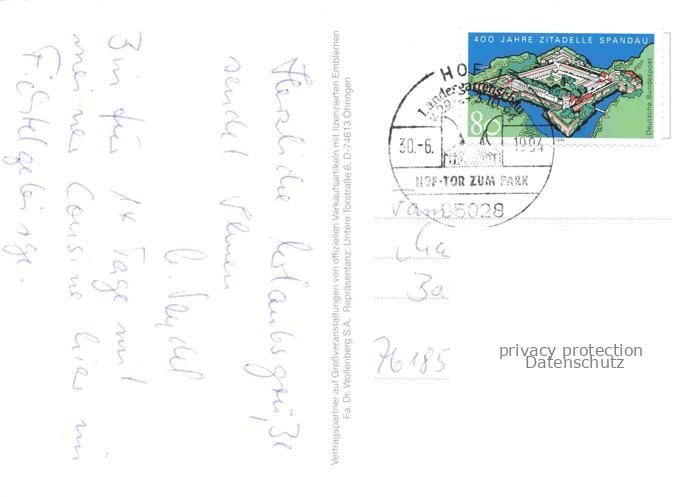 Herzliche Urlaubsgrüße
sendet Ihnen
Bin für 14 Tage mit
meiner Cousine hier im
Fichtelgebirge.
Vertragspartner auf Großveranstaltungen von offiziellen Verkaufsartikeln mit lizenzierten Emblemen
Fa. Dr. Wollenberg S.A. Repräsentanz: Untere Torstraße 6, D-74613 Öhringen
400 JAHRE ZITADELLE SPANDAU
Deutsche Bundespost
80
HOF
Landesgartenschau
30.-6. 1994
HOF-TOR ZUM PARK
95028
Fam
Ma
Ba
76185
privacy protection
Datenschutz